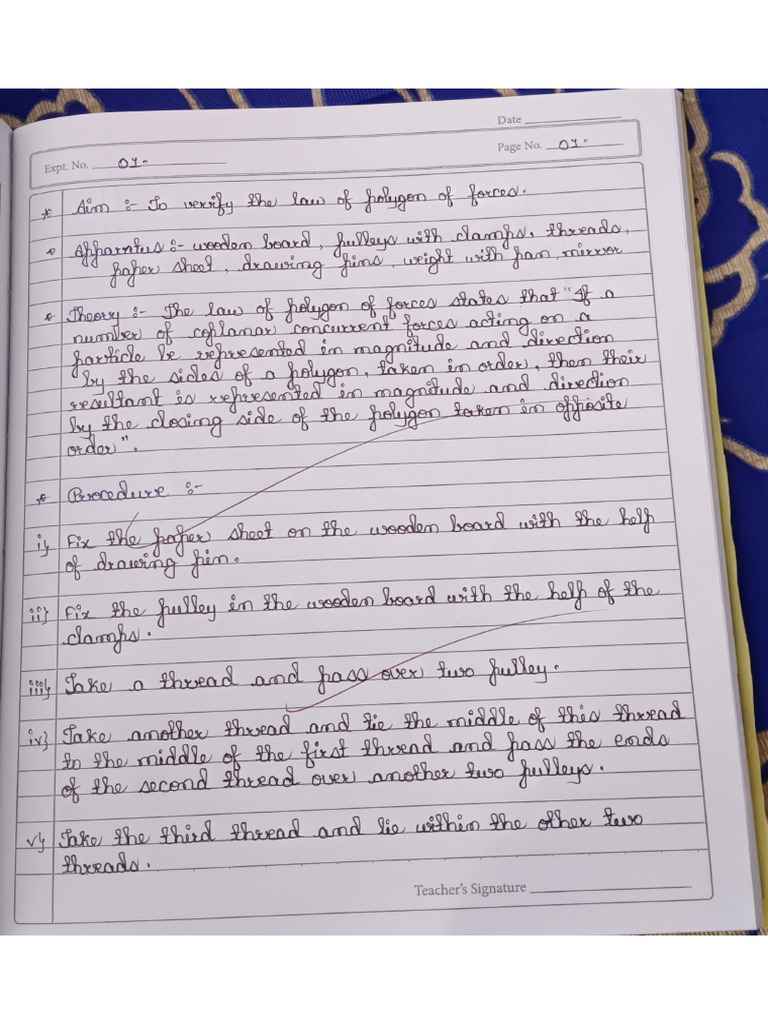 Date
Expt. No. 01.
Page No. 01.
* Aim :- To verify the law of polygon of forces.
* Apparatus :- wooden board, pulleys with clamps, threads,
paper sheet, drawing pins, weight with pan, mirror
* Theory :- The law of polygon of forces states that "If a
number of coplanar concurrent forces acting on a
particle be represented in magnitude and direction
by the sides of a polygon, taken in order, then their
resultant is represented in magnitude and direction
by the closing side of the polygon taken in opposite
order".
* Procedure :-
i} Fix the paper sheet on the wooden board with the help
of drawing pin.
ii} Fix the pulley in the wooden board with the help of the
clamps.
iii} Take a thread and pass over two pulley.
iv} Take another thread and tie the middle of this thread
to the middle of the first thread and pass the ends
of the second thread over another two pulleys.
v} Take the third thread and tie within the other two
threads.
Teacher's Signature